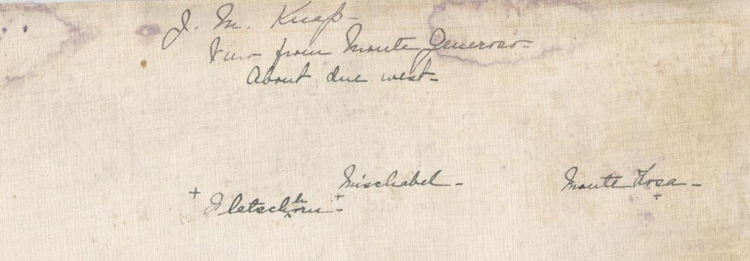 J. M. Knap-
View from Monte Generoso-
About due west-
Mischabel -
Monte Rosa -
+ Fletschhorn - +
+